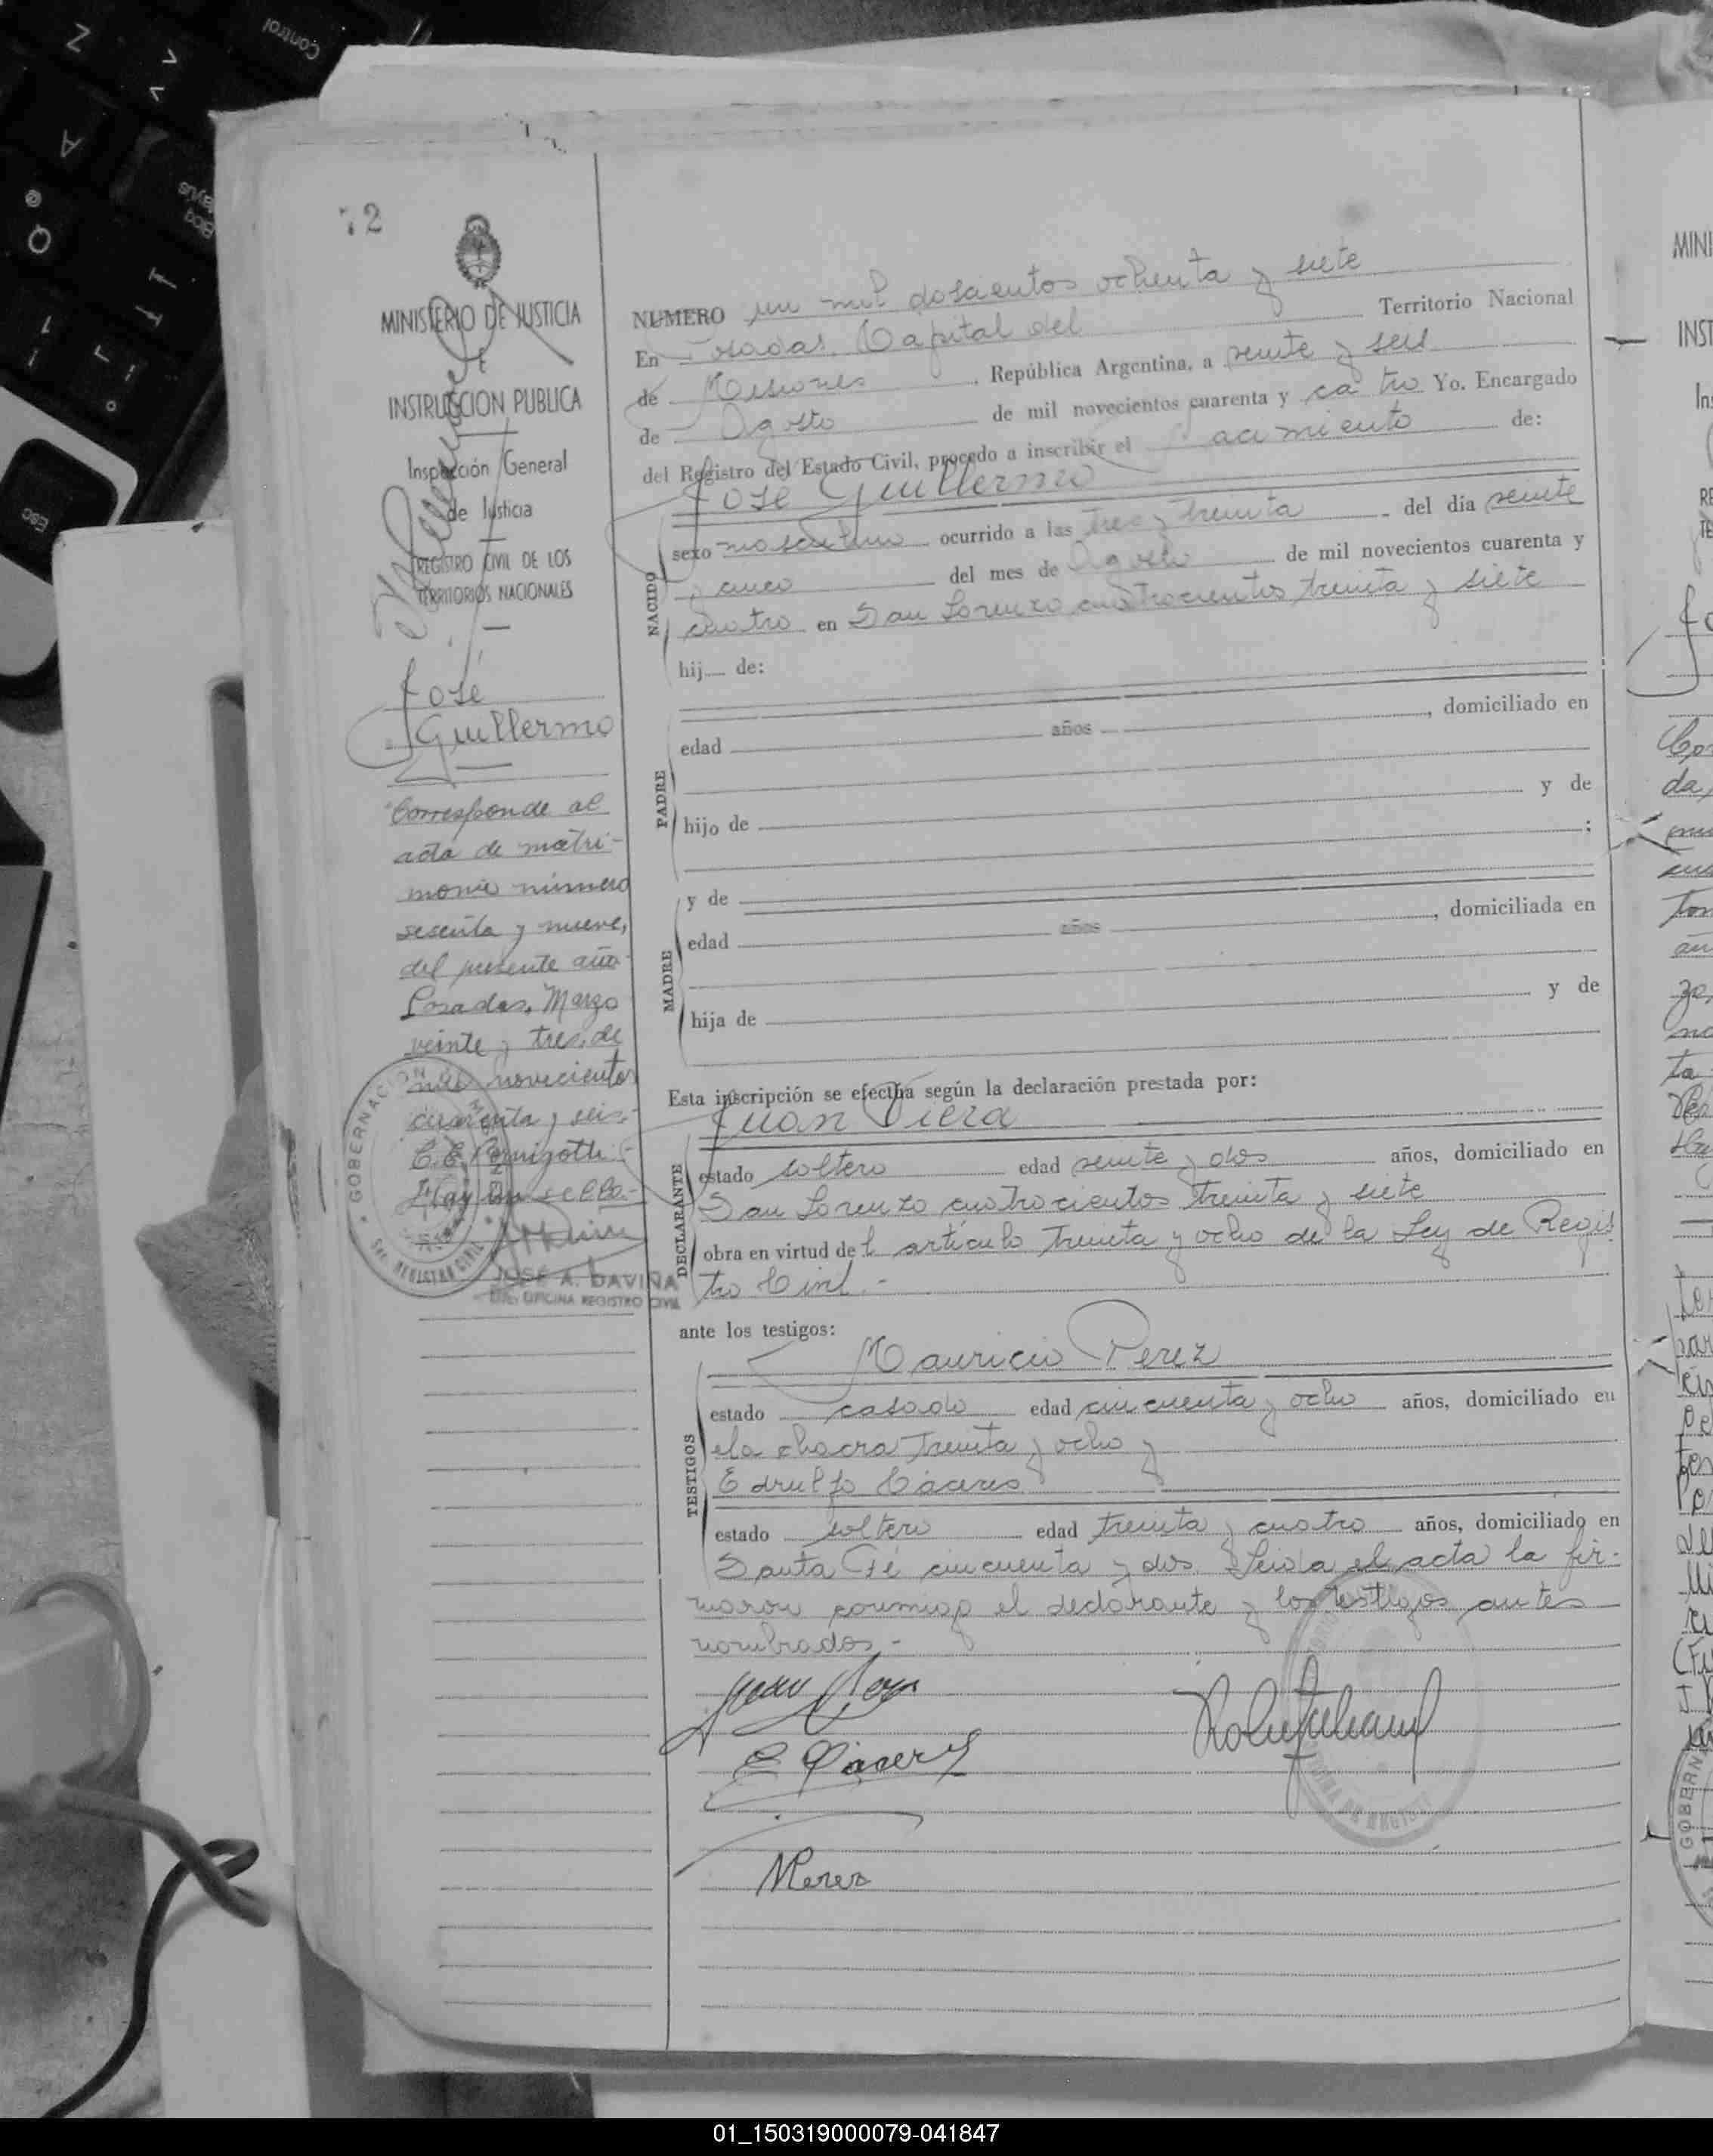 Control
Z
A
Q
Bloq
Mayús
Esc
72
MINISTERIO DE JUSTICIA
E
INSTRUCCION PUBLICA
Inspección General
de Justicia
REGISTRO CIVIL DE LOS
TERRITORIOS NACIONALES
José
Guillermo
Corresponde al
acta de matri-
monio número
sesenta y nueve,
del presente año
Posadas, Marzo
veinte y tres de
mil novecientos
cuarenta y seis.-
Hay un sello.-
GOBERNACION
REGISTRO CIVIL
JOSÉ A. DAVIÑA
OFICINA REGISTRO CIVIL
NUMERO un mil doscientos ochenta y siete
En Posadas, Capital del Territorio Nacional
de Misiones, República Argentina, a veinte y seis
de Agosto de mil novecientos cuarenta y cuatro Yo. Encargado
del Registro del Estado Civil, procedo a inscribir el nacimiento de:
José Guillermo
NACIDO
sexo masculino ocurrido a las tres y treinta del día veinte
y cinco del mes de Agosto de mil novecientos cuarenta y
cuatro en San Lorenzo cuatrocientos treinta y siete
hij de:
PADRE
edad años, domiciliado en
y de
hijo de
;
MADRE
y de
edad años, domiciliada en
y de
hija de
Esta inscripción se efectúa según la declaración prestada por:
Juan Viera
DECLARANTE
estado soltero edad veinte y dos años, domiciliado en
San Lorenzo cuatrocientos treinta y siete
obra en virtud del artículo treinta y ocho de la Ley de Regis
tro Civil.-
ante los testigos:
Mauricio Perez
TESTIGOS
estado casado edad cincuenta y ocho años, domiciliado en
la chacra treinta y ocho y
Edrulfo Cáceres
estado soltero edad treinta y cuatro años, domiciliado en
Santa Fé cincuenta y dos. Leida el acta la fir-
maron conmigo el declarante y los testigos antes
nombrados.-
E Cáceres
MPerez
MINI
INST
GOBERN
01_150319000079-041847